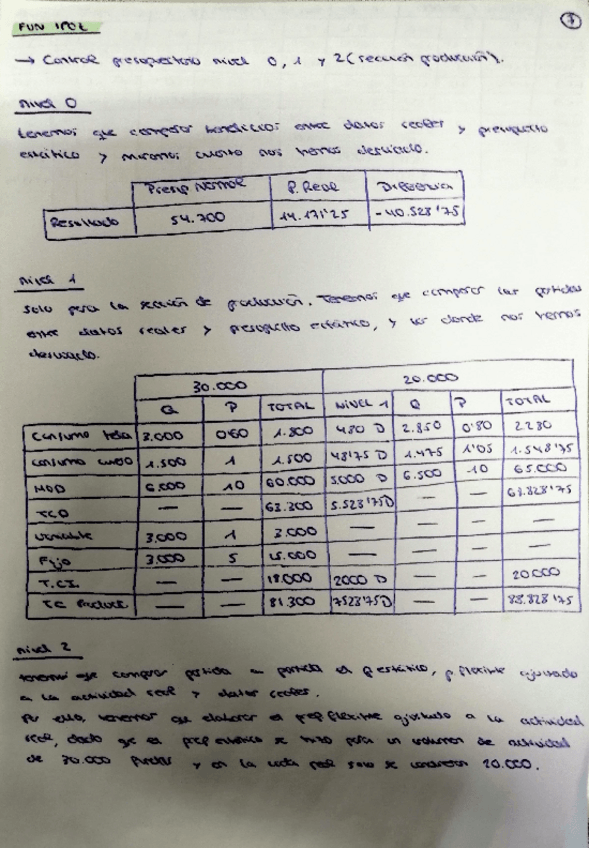 FUN IPOL
1
→ Control presupuestario nivel 0, 1 y 2 (sección producción).
nivel 0
tenemos que comparar beneficios entre datos reales y presupuesto
estático y miramos cuanto nos hemos desviado.
Presup Normal P. Real Diferencia
Resultado 54.700 14.171'25 -40.528'75
nivel 1
solo para la sección de producción. Tenemos que comparar las partidas
entre datos reales y presupuesto estático, y ver donde nos hemos
desviado.
30.000 20.000
Q P TOTAL NIVEL 1 Q P TOTAL
Consumo tela 3.000 0'60 1.800 480 D 2.850 0'80 2280
consumo 1.500 1 1.500 48'75 D 1.475 1'05 1.548'75
MOD 6.000 10 60.000 5000 D 6.500 10 65.000
TCD — — 63.300 5.528'75D — — 68.828'75
variable 3.000 1 3.000 — — — —
Fijo 3.000 5 15.000 — — — —
T.C.I. — — 18.000 2000 D — — 20.000
TC Product — — 81.300 7528'75D — — 88.828'75
nivel 2
tenemos que comparar partida a partida el p estático, p flexible ajustado
a la actividad real y datos reales.
Por ello, tenemos que elaborar el prep flexible ajustado a la actividad
real, dado que el prep estático se hizo para un volumen de actividad
de 30.000 y en la real solo se vendieron 20.000.